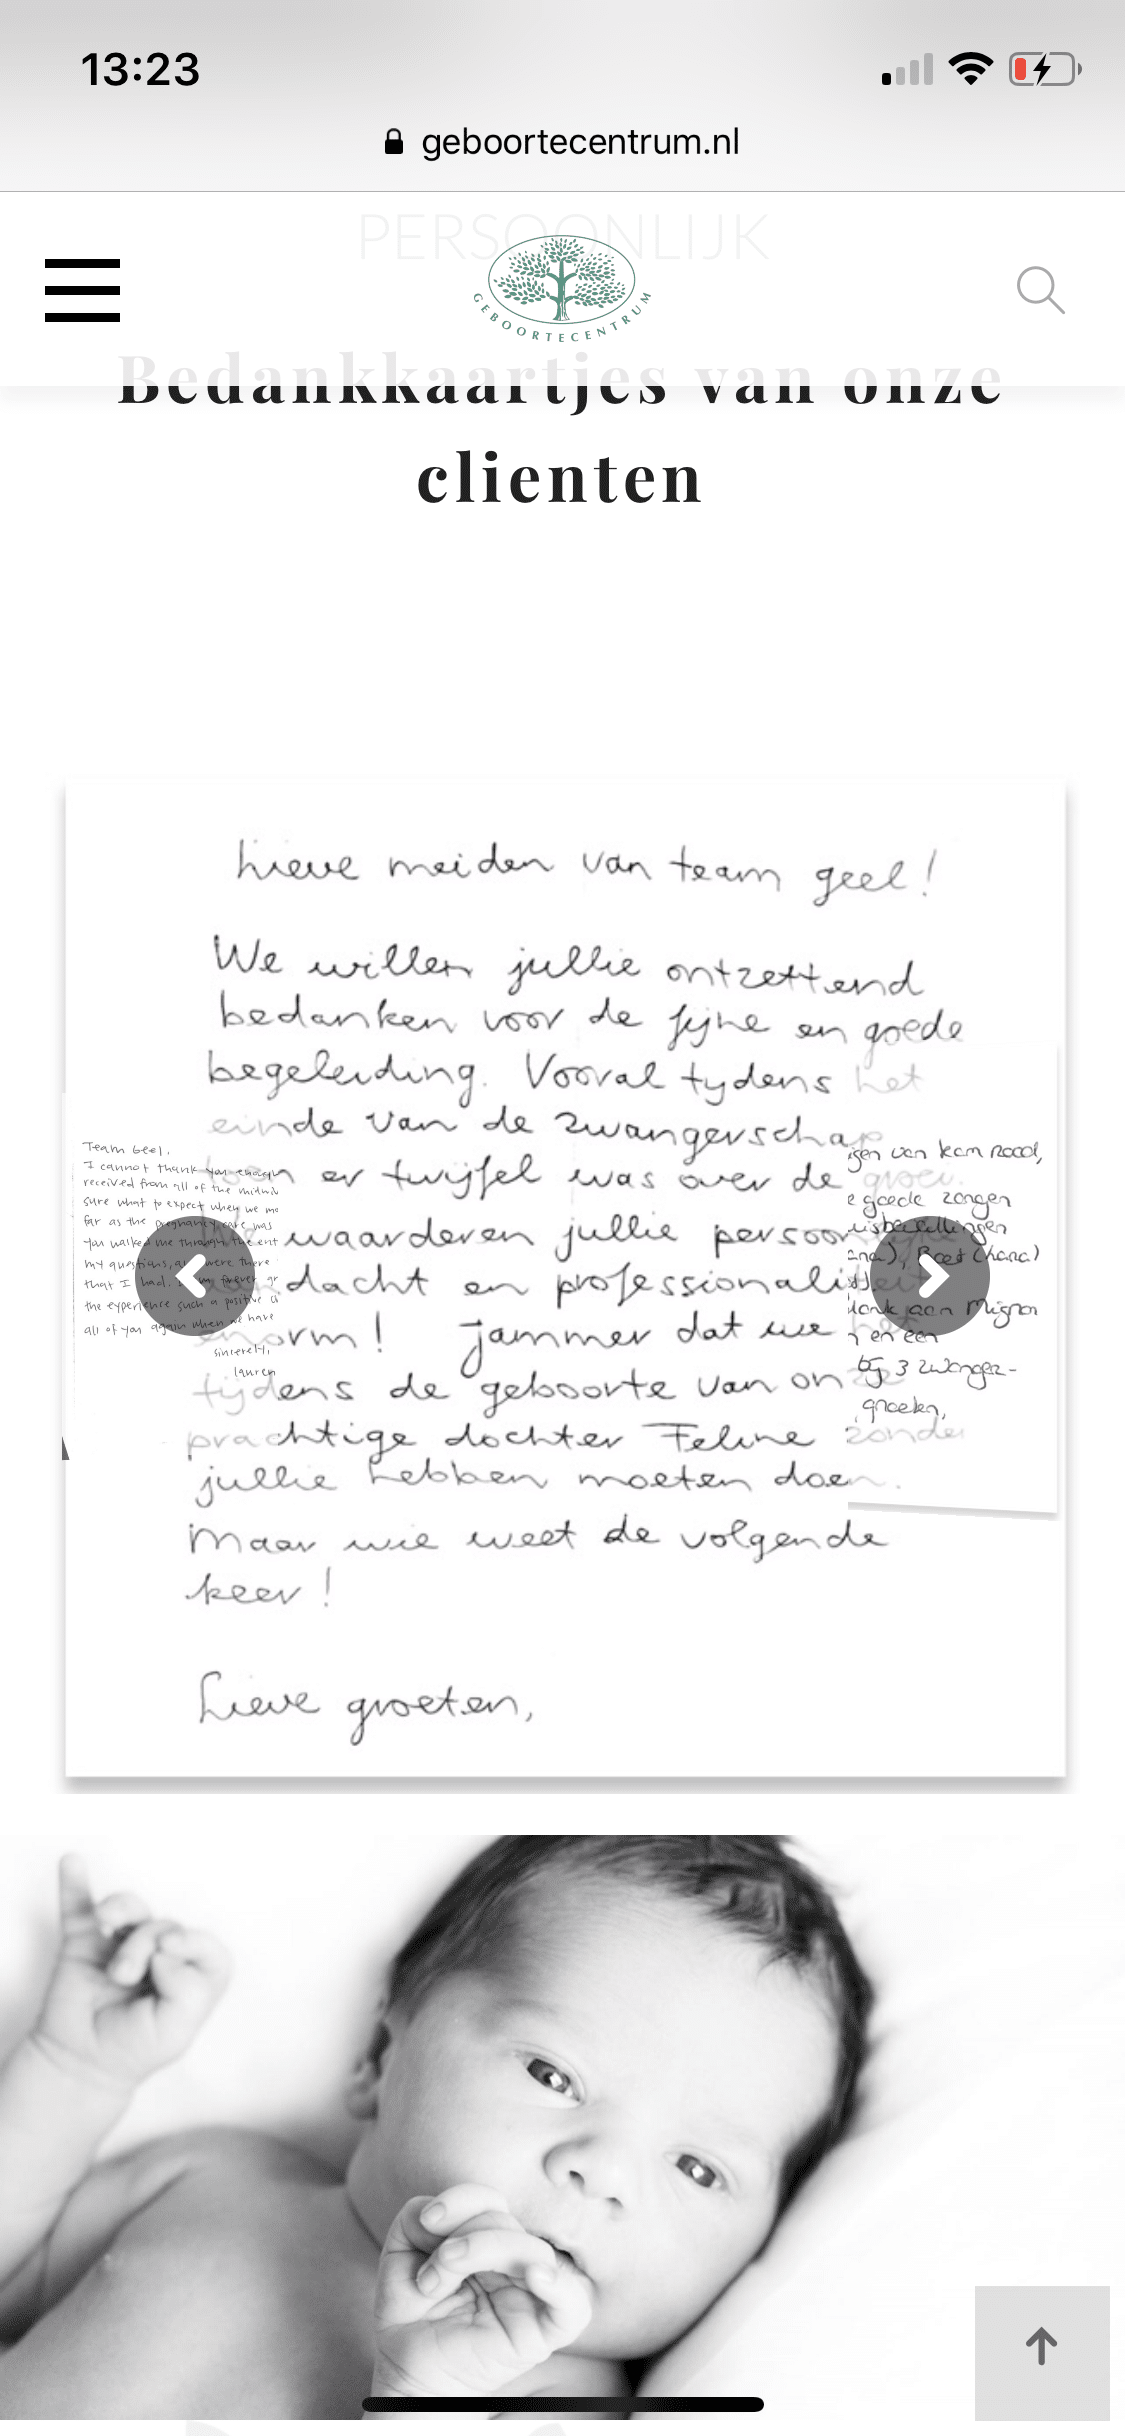 13:23
geboortecentrum.nl
PERSOONLIJK
GEBOORTECENTRUM
Bedankkaartjes van onze
clienten
Lieve meiden van team geel!
We willen jullie ontzettend
bedanken voor de fijne en goede
begeleiding. Vooral tijdens het
einde van de zwangerschap
toen er twijfel was over de groei.
waarderen jullie persoon
dacht en professionaliteit
enorm! Jammer dat we het
tijdens de geboorte van onze
prachtige dochter Feline zonder
jullie hebben moeten doen.
Maar wie weet de volgende
keer!
Lieve groeten,
Team Geel,
I cannot thank you enough
received from all of the midwi
sure what to expect when we mo
far as the pregnancy care was
you walked me through the ent
my questions, were there
that I had. my forever gr
the experience such a positive
all of you again when we have
sincerely,
lauren
van team Rood,
goede zorgen
Boet (hara)
aan Mignon
en een
bij 3 zwanger-
groeten,